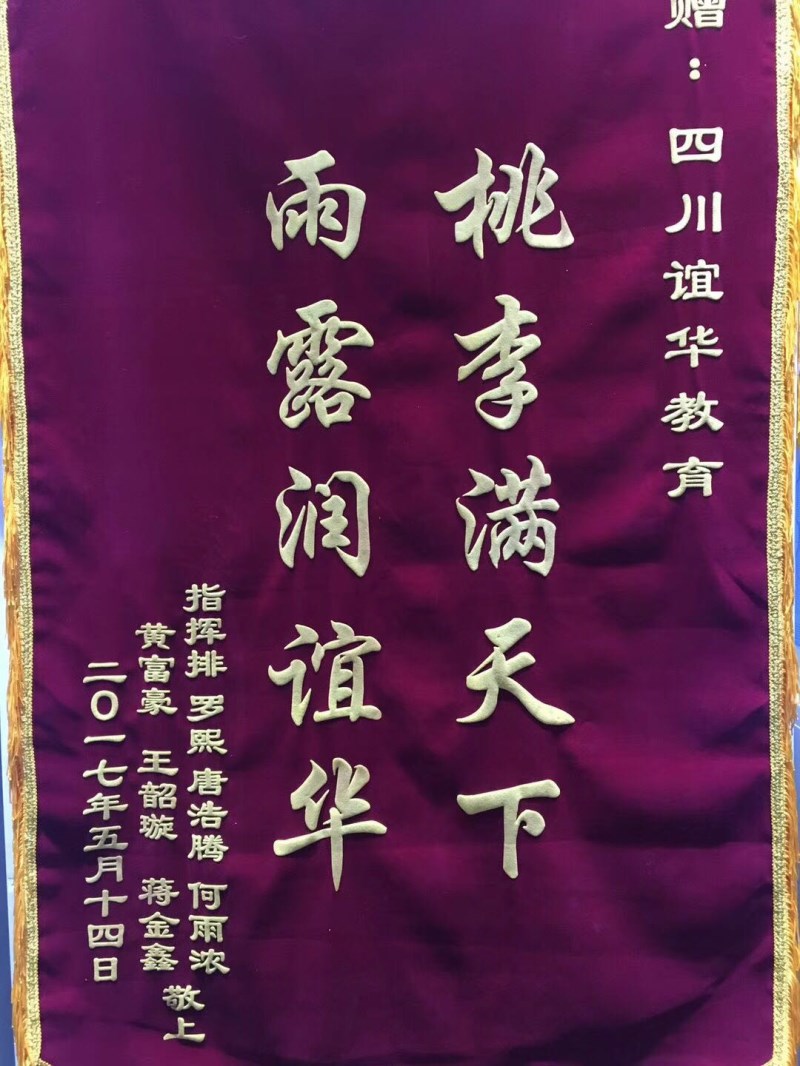 赠：四川谊华教育
桃李满天下
雨露润谊华
指挥排 罗熙 唐浩腾 何雨浓
黄富豪 王韶璇 蒋金鑫 敬上
二〇一七年五月十四日